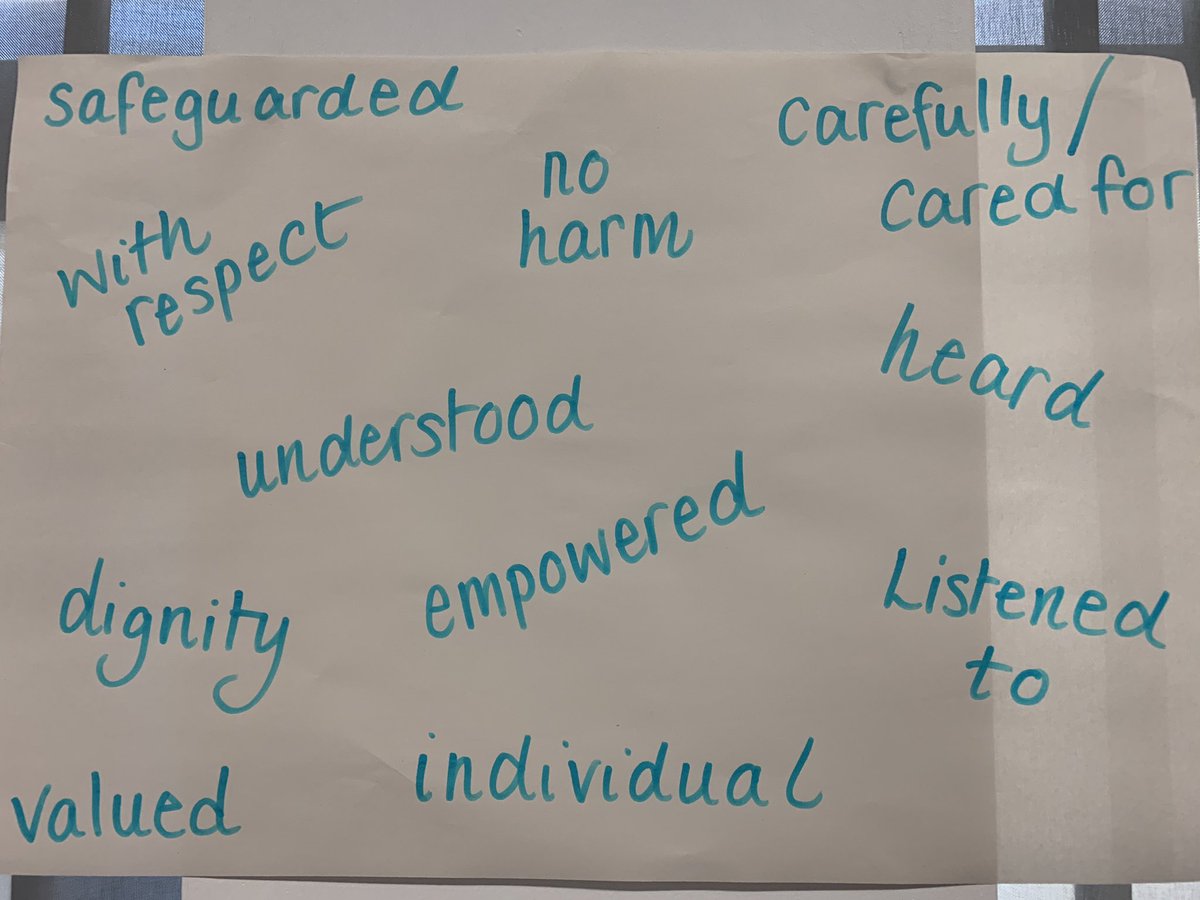 safeguarded
carefully/
cared for
no
harm
with
respect
heard
understood
empowered
dignity
Listened
to
individual
valued